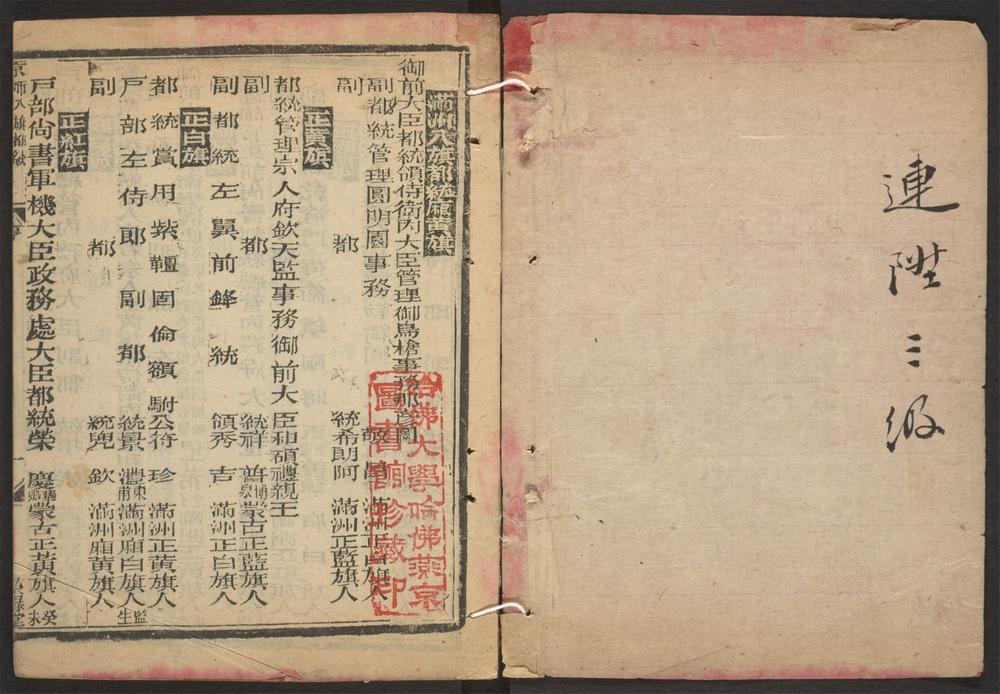 連陞三級
滿洲八旗都統廂黃旗
御前大臣都統領侍衛內大臣管理御鳥槍事務那彥圖
副都統管理圓明園事務 滿洲正白旗人
副都統希朗阿 滿洲正藍旗人
正黃旗
都統管理宗人府欽天監事務御前大臣和碩禮親王
副都統祥普 蒙古正藍旗人
副都統左翼前鋒統領秀吉 滿洲正白旗人
正白旗
都統賞用紫韁固倫額駙公符珍 滿洲正黃旗人
戶部左侍郎副都統景灃東甫滿洲廂白旗人監生
副都統兜欽 滿洲廂黃旗人
正紅旗
戶部尚書軍機大臣政務處大臣都統榮慶華卿蒙古正黃旗人癸未
京師八旗都統
哈佛大學哈佛燕京
圖書館珍藏印